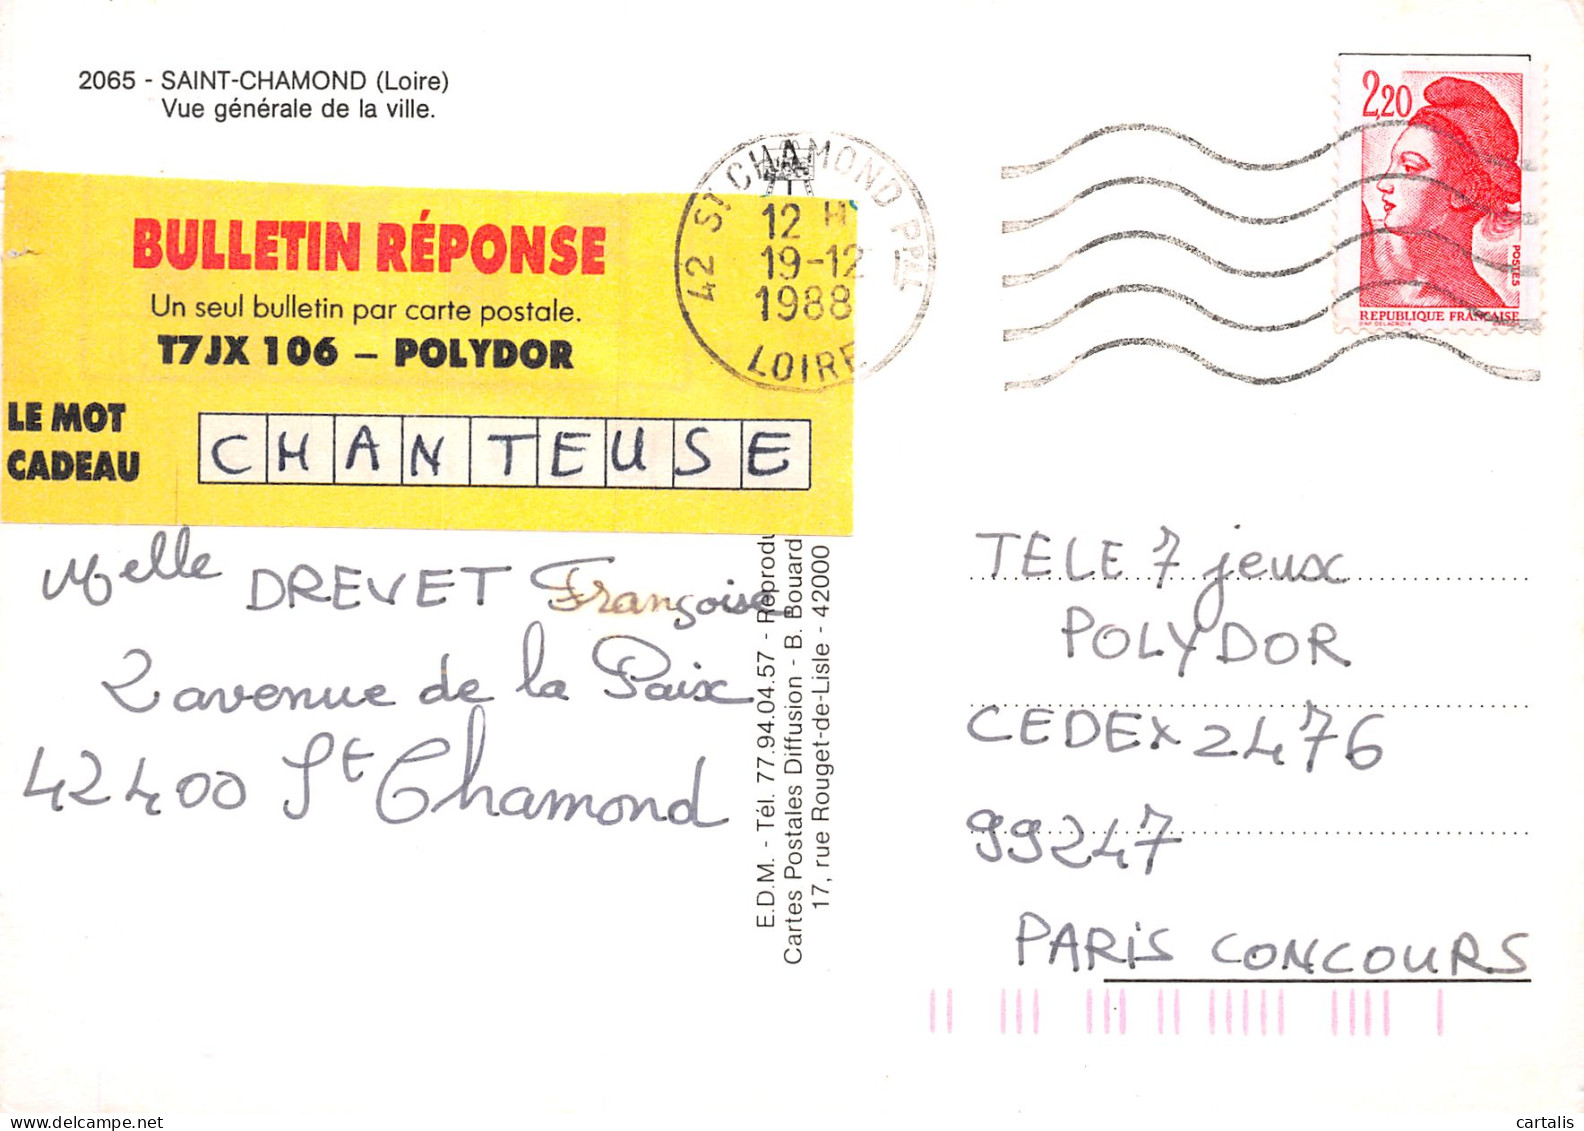 2065 - SAINT-CHAMOND (Loire)
Vue générale de la ville.
BULLETIN RÉPONSE
Un seul bulletin par carte postale.
T7JX 106 – POLYDOR
LE MOT
CADEAU
CHANTEUSE
Melle DREVET Françoise
2 avenue de la Paix
42400 St Chamond
42 ST CHAMOND PPAL
12 H
19-12
1988
LOIRE
2,20
POSTES
REPUBLIQUE FRANÇAISE
D'AP. DELACROIX
E.D.M. - Tél. 77.94.04.57 - Reprodu
Cartes Postales Diffusion - B. Bouard
17, rue Rouget-de-Lisle - 42000
TELE 7 jeux
POLYDOR
CEDEX 2476
99247
PARIS CONCOURS
cartalis